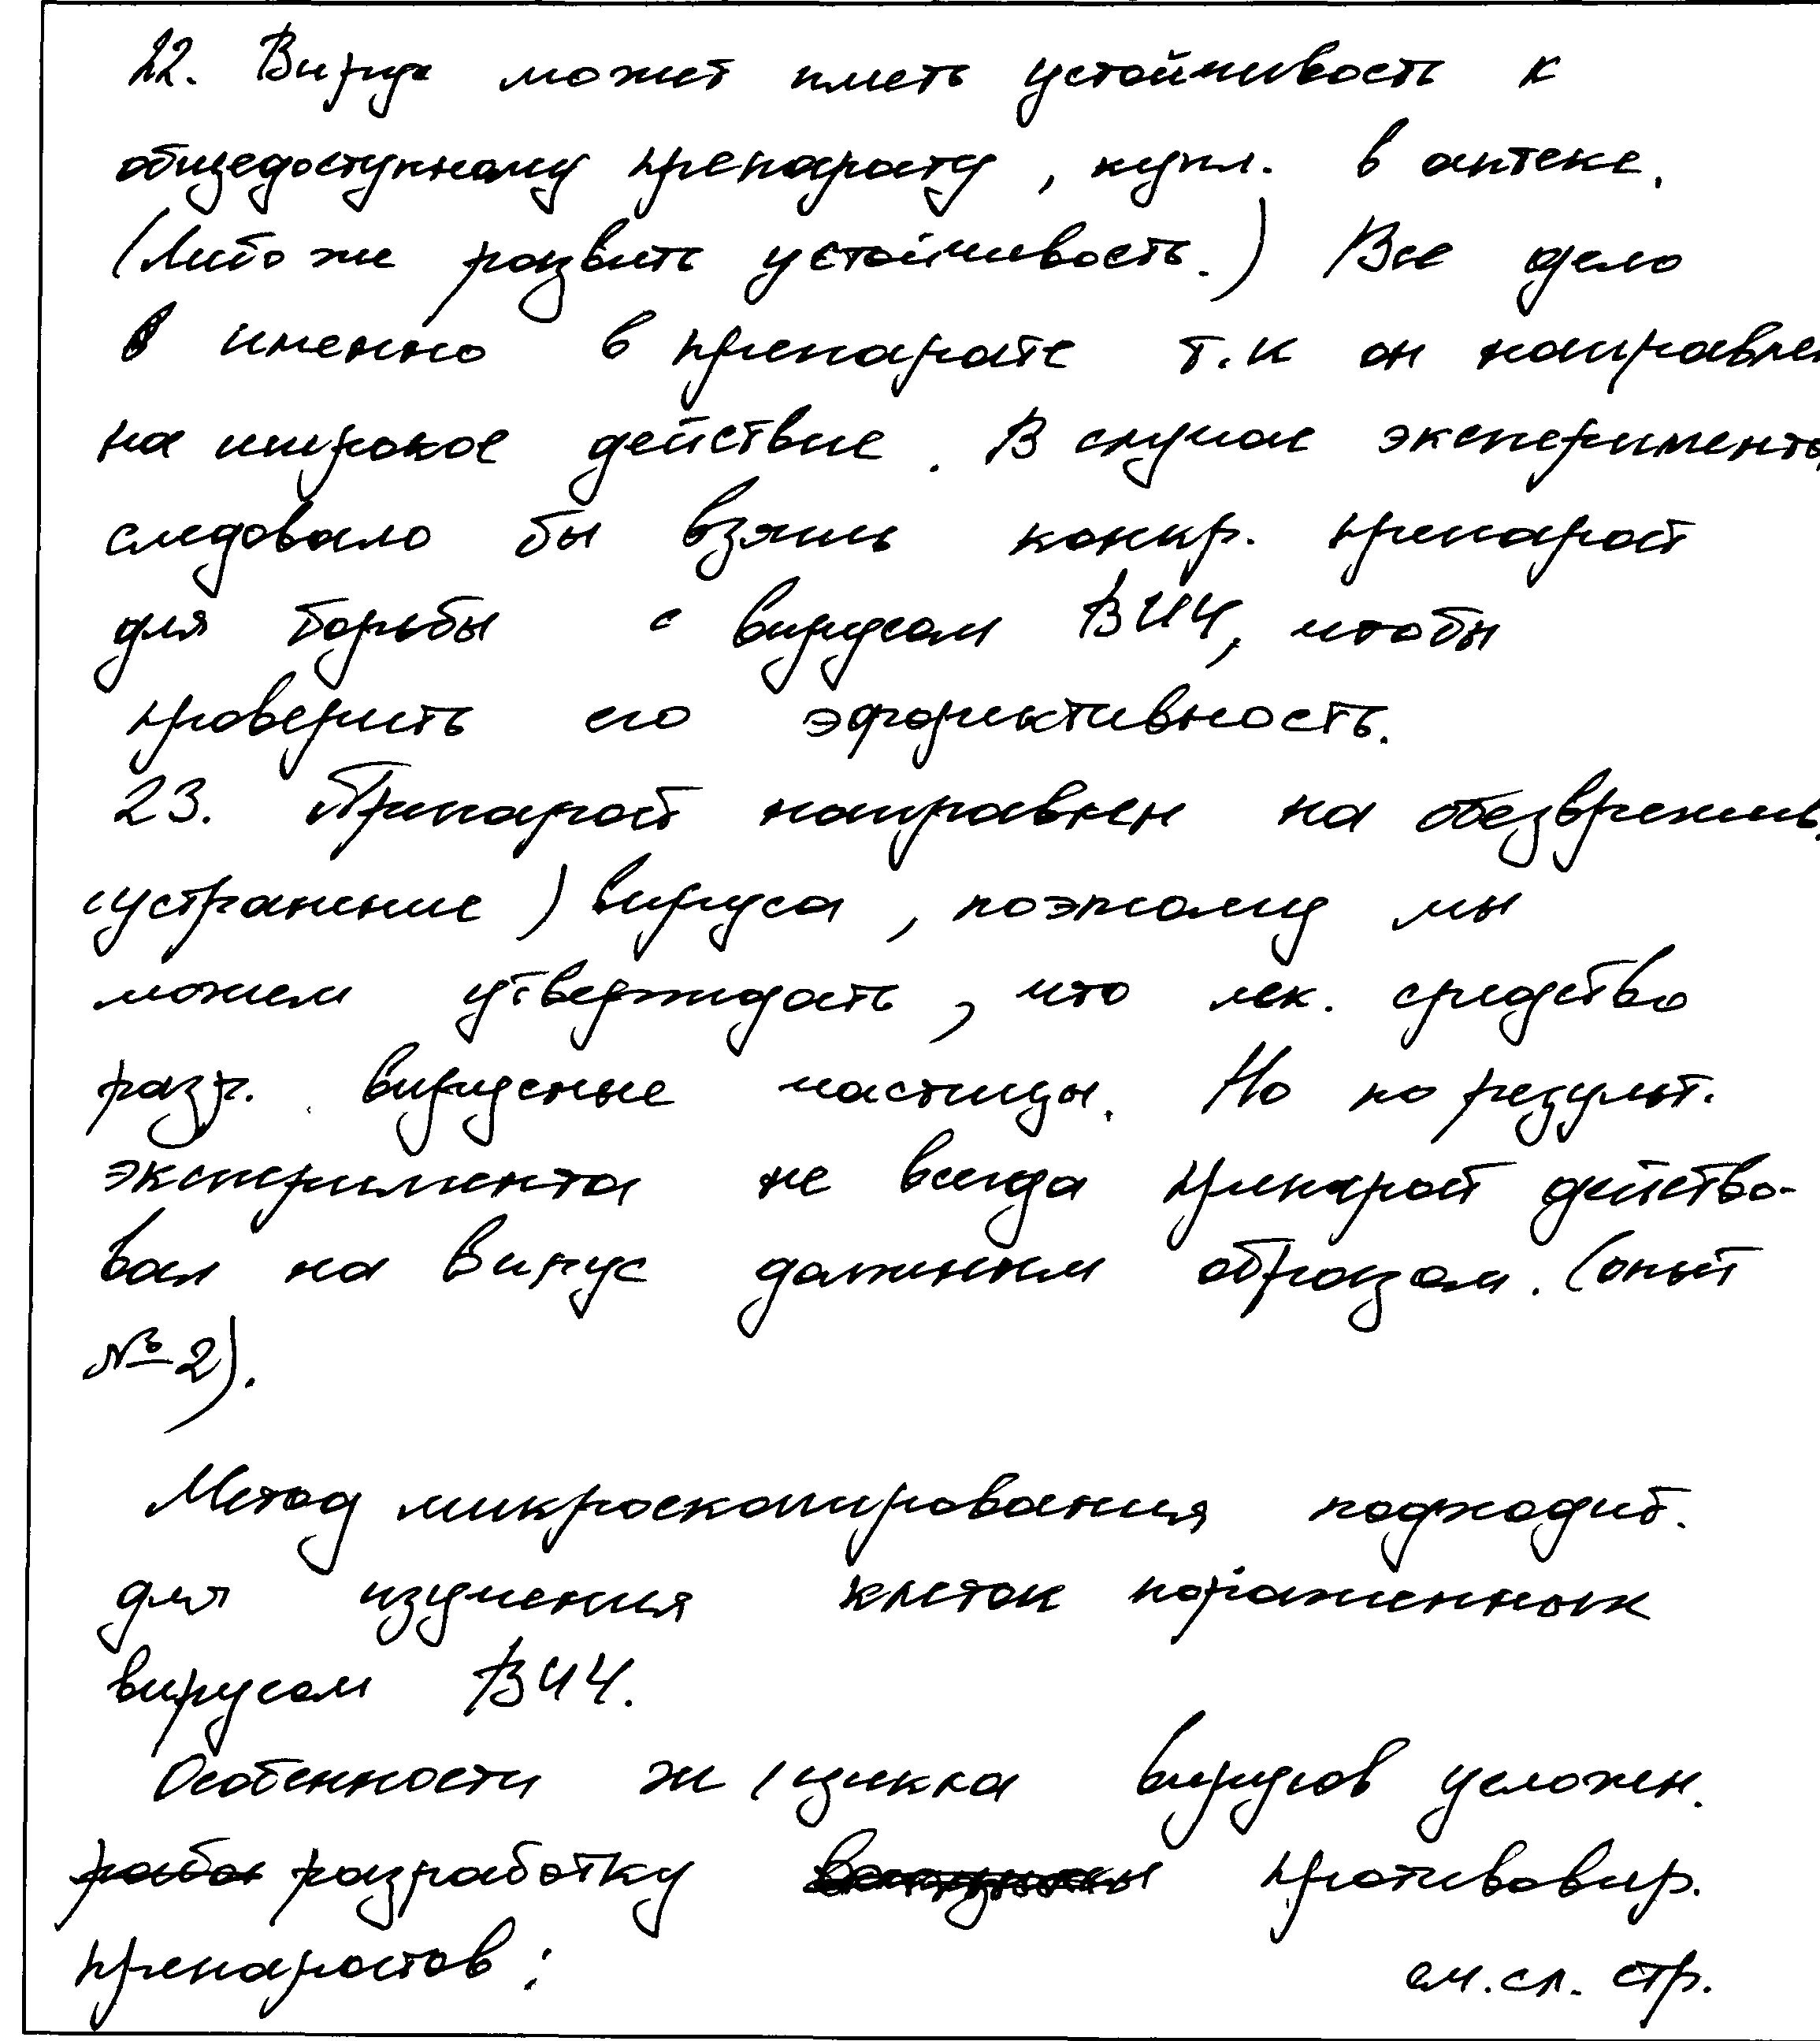 22. Вирус может иметь устойчивость к
общедоступному препарату, купл. в аптеке.
(Либо же развить устойчивость.) Все дело
в именно в препарате т.к он направлен
на широкое действие. В случае эксперимента
следовало бы взять конкр. препарат
для борьбы с вирусом ВИЧ, чтобы
проверить его эффективность.
23. Препарат направлен на обезврежив.
(устранение) вируса, поэтому мы
можем утверждать, что лек. средство
разр. вирусные частицы. Но по результ.
эксперимента не всегда препарат действо-
вал на вирус должным образом. (опыт
№2).
Метод микроскопирования подходит.
для изучения клеток пораженных
вирусом ВИЧ.
Особенности ж/цикла вирусов усложн.
разработку противовир.
препаратов: см. сл. стр.